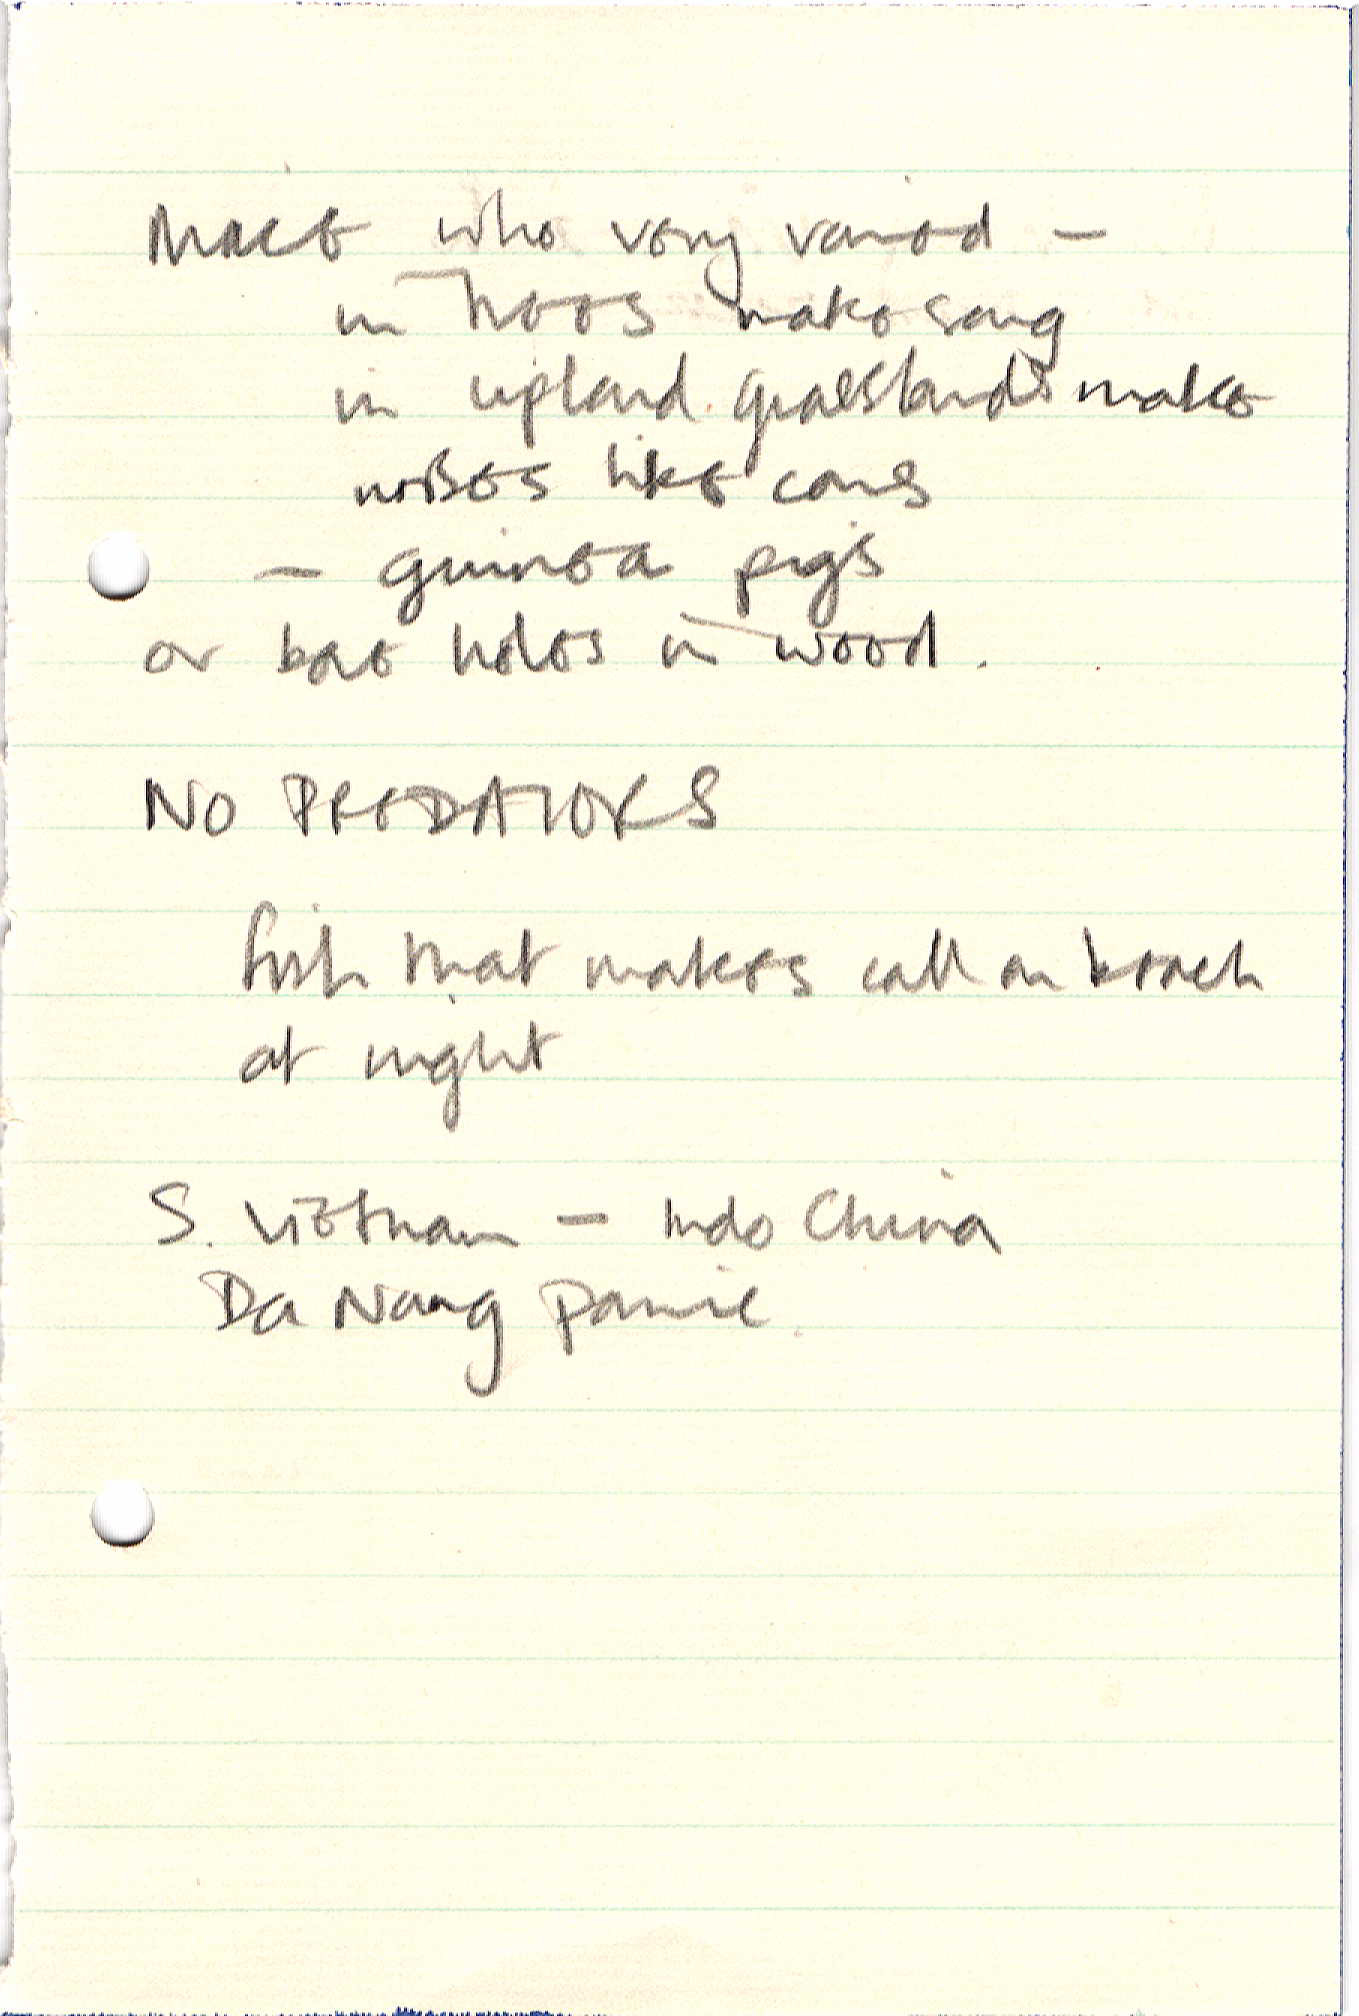 Mice who very varied –
in trees make song
in upland grasslands make
noises like cows
– guinea pigs
or bore holes in wood.
NO PREDATORS
fish that makes call on beach
at night
S. Vietnam – Indo China
Da Nang panic.